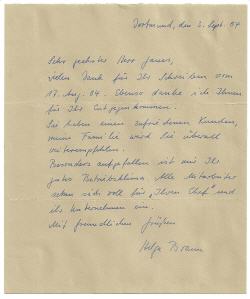 Dortmund, den 2. Sept. 04
Sehr geehrter Herr
vielen Dank für Ihr Schreiben vom
17. Aug. 04. Ebenso danke ich Ihnen
für Ihr Entgegenkommen.
Sie haben einen zufriedenen Kunden,
meine Familie wird Sie überall
weiterempfehlen.
Besonders aufgefallen ist mir Ihr
gutes Betriebsklima. Alle Mitarbeiter
setzen sich voll für „Ihren Chef" und
ihr Unternehmen ein.
Mit freundlichen Grüßen
Helga Braun